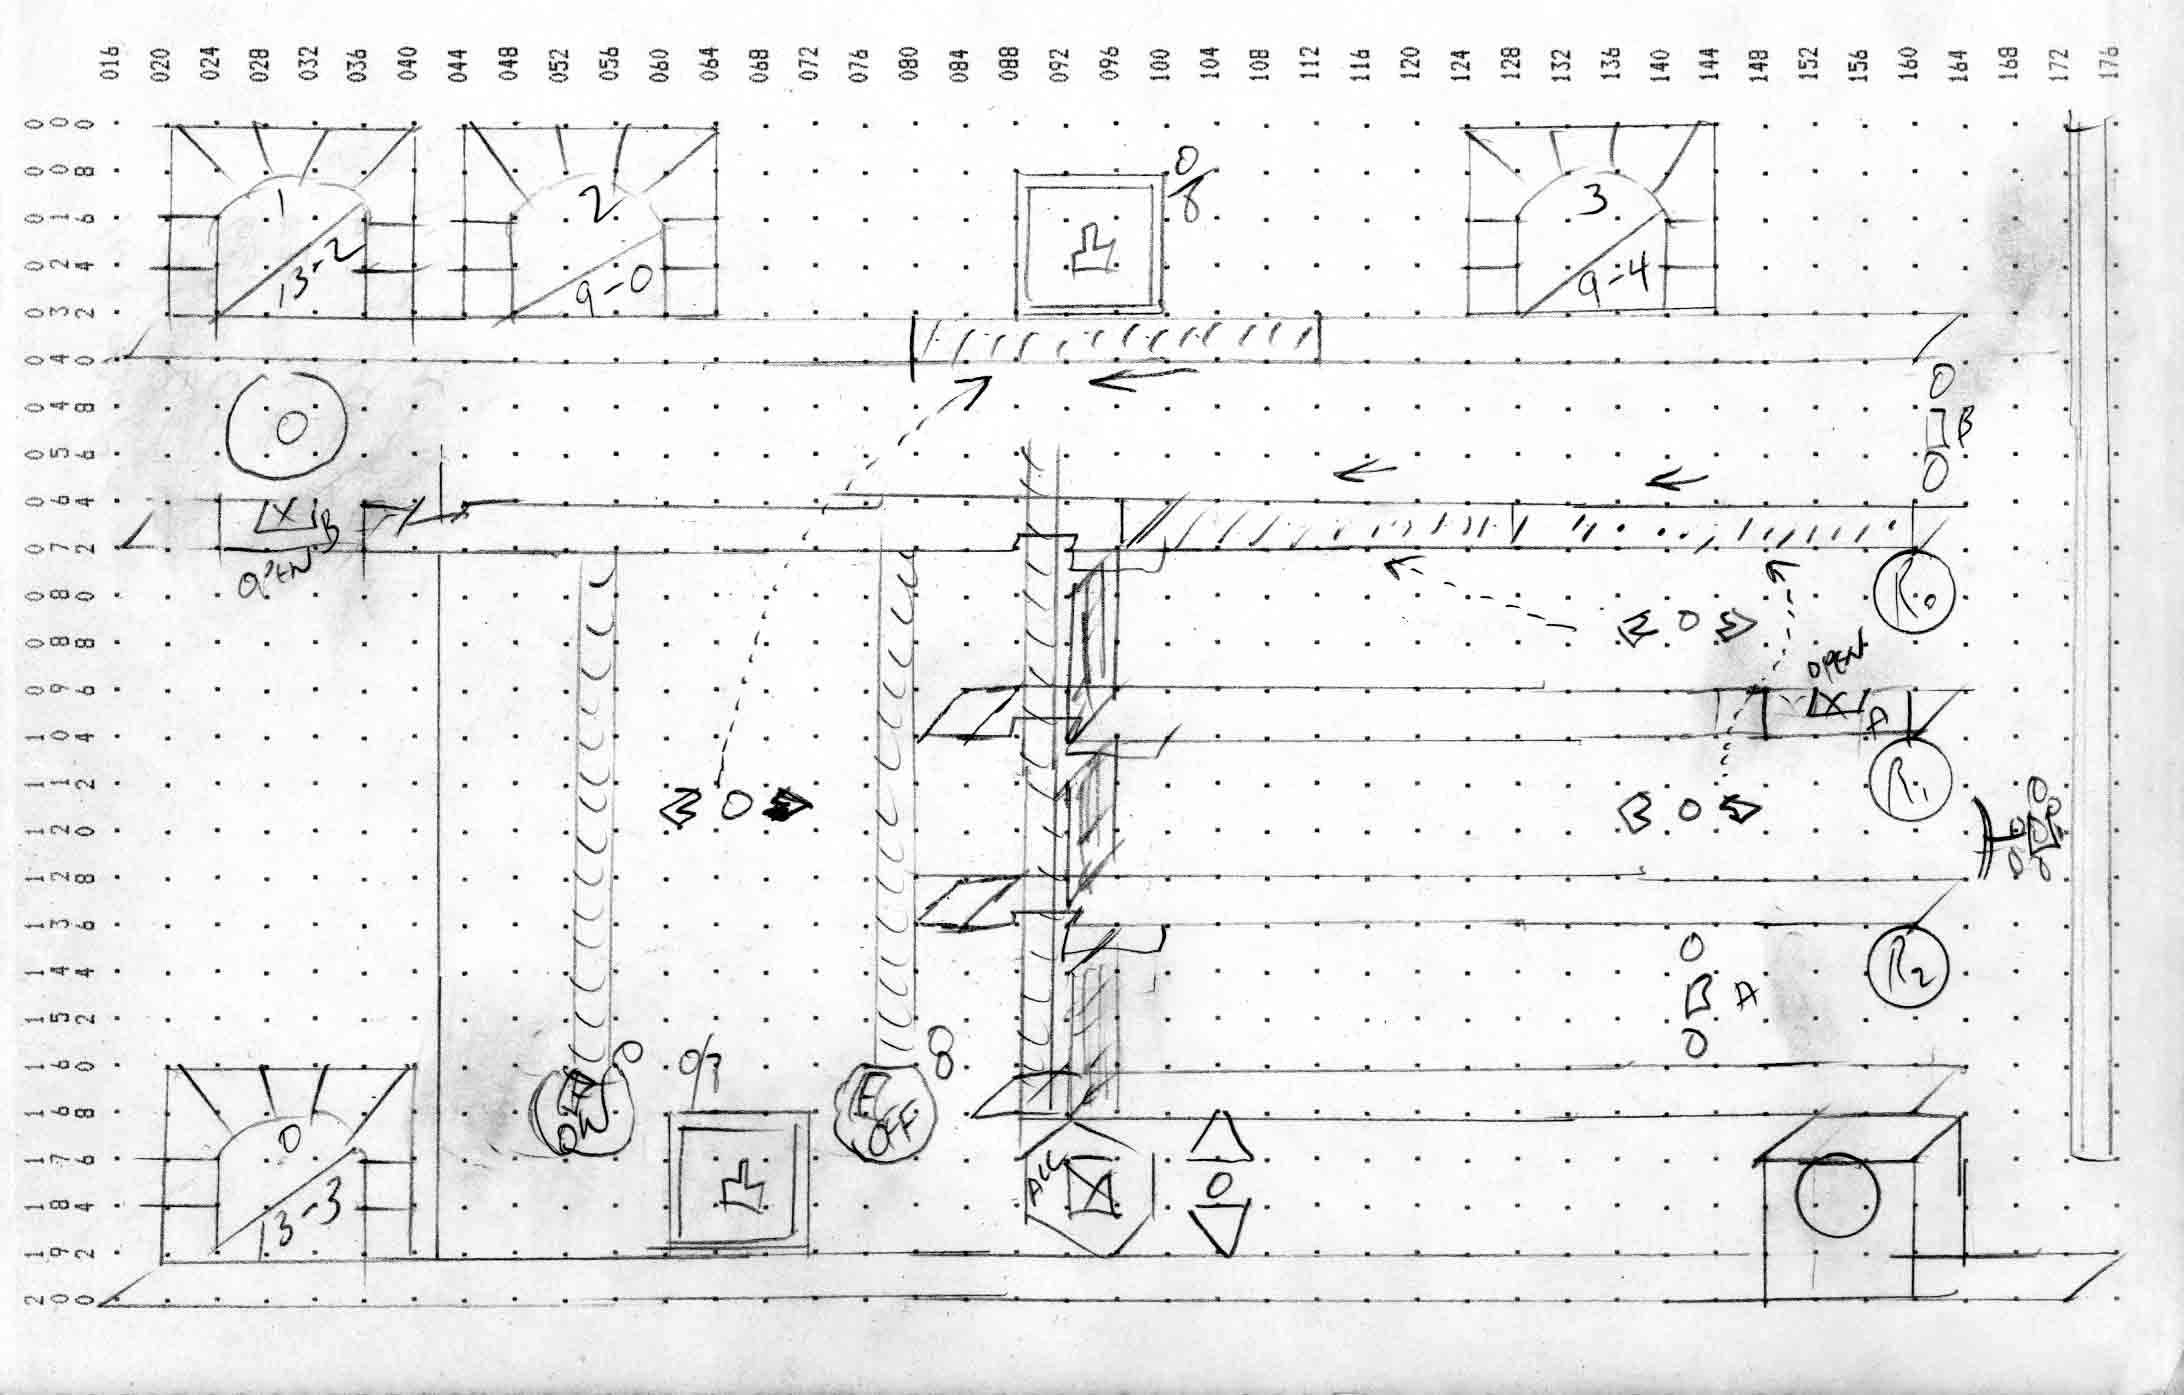 016 020 024 028 032 036 040 044 048 052 056 060 064 068 072 076 080 084 088 092 096 100 104 108 112 116 120 124 128 132 136 140 144 148 152 156 160 164 168 172 176
000
008
016
024
032
040
048
056
064
072
080
088
096
104
112
120
128
136
144
152
160
168
176
184
192
200
1
13-2
2
9-0
0/8
3
9-4
0
B
0
0
X B
OPEN
R0
0
OPEN
X A
R1
0
0
R2
0
A
0
0
ON
0/8
E
OFF
8
ALL
X
0
0
13-3